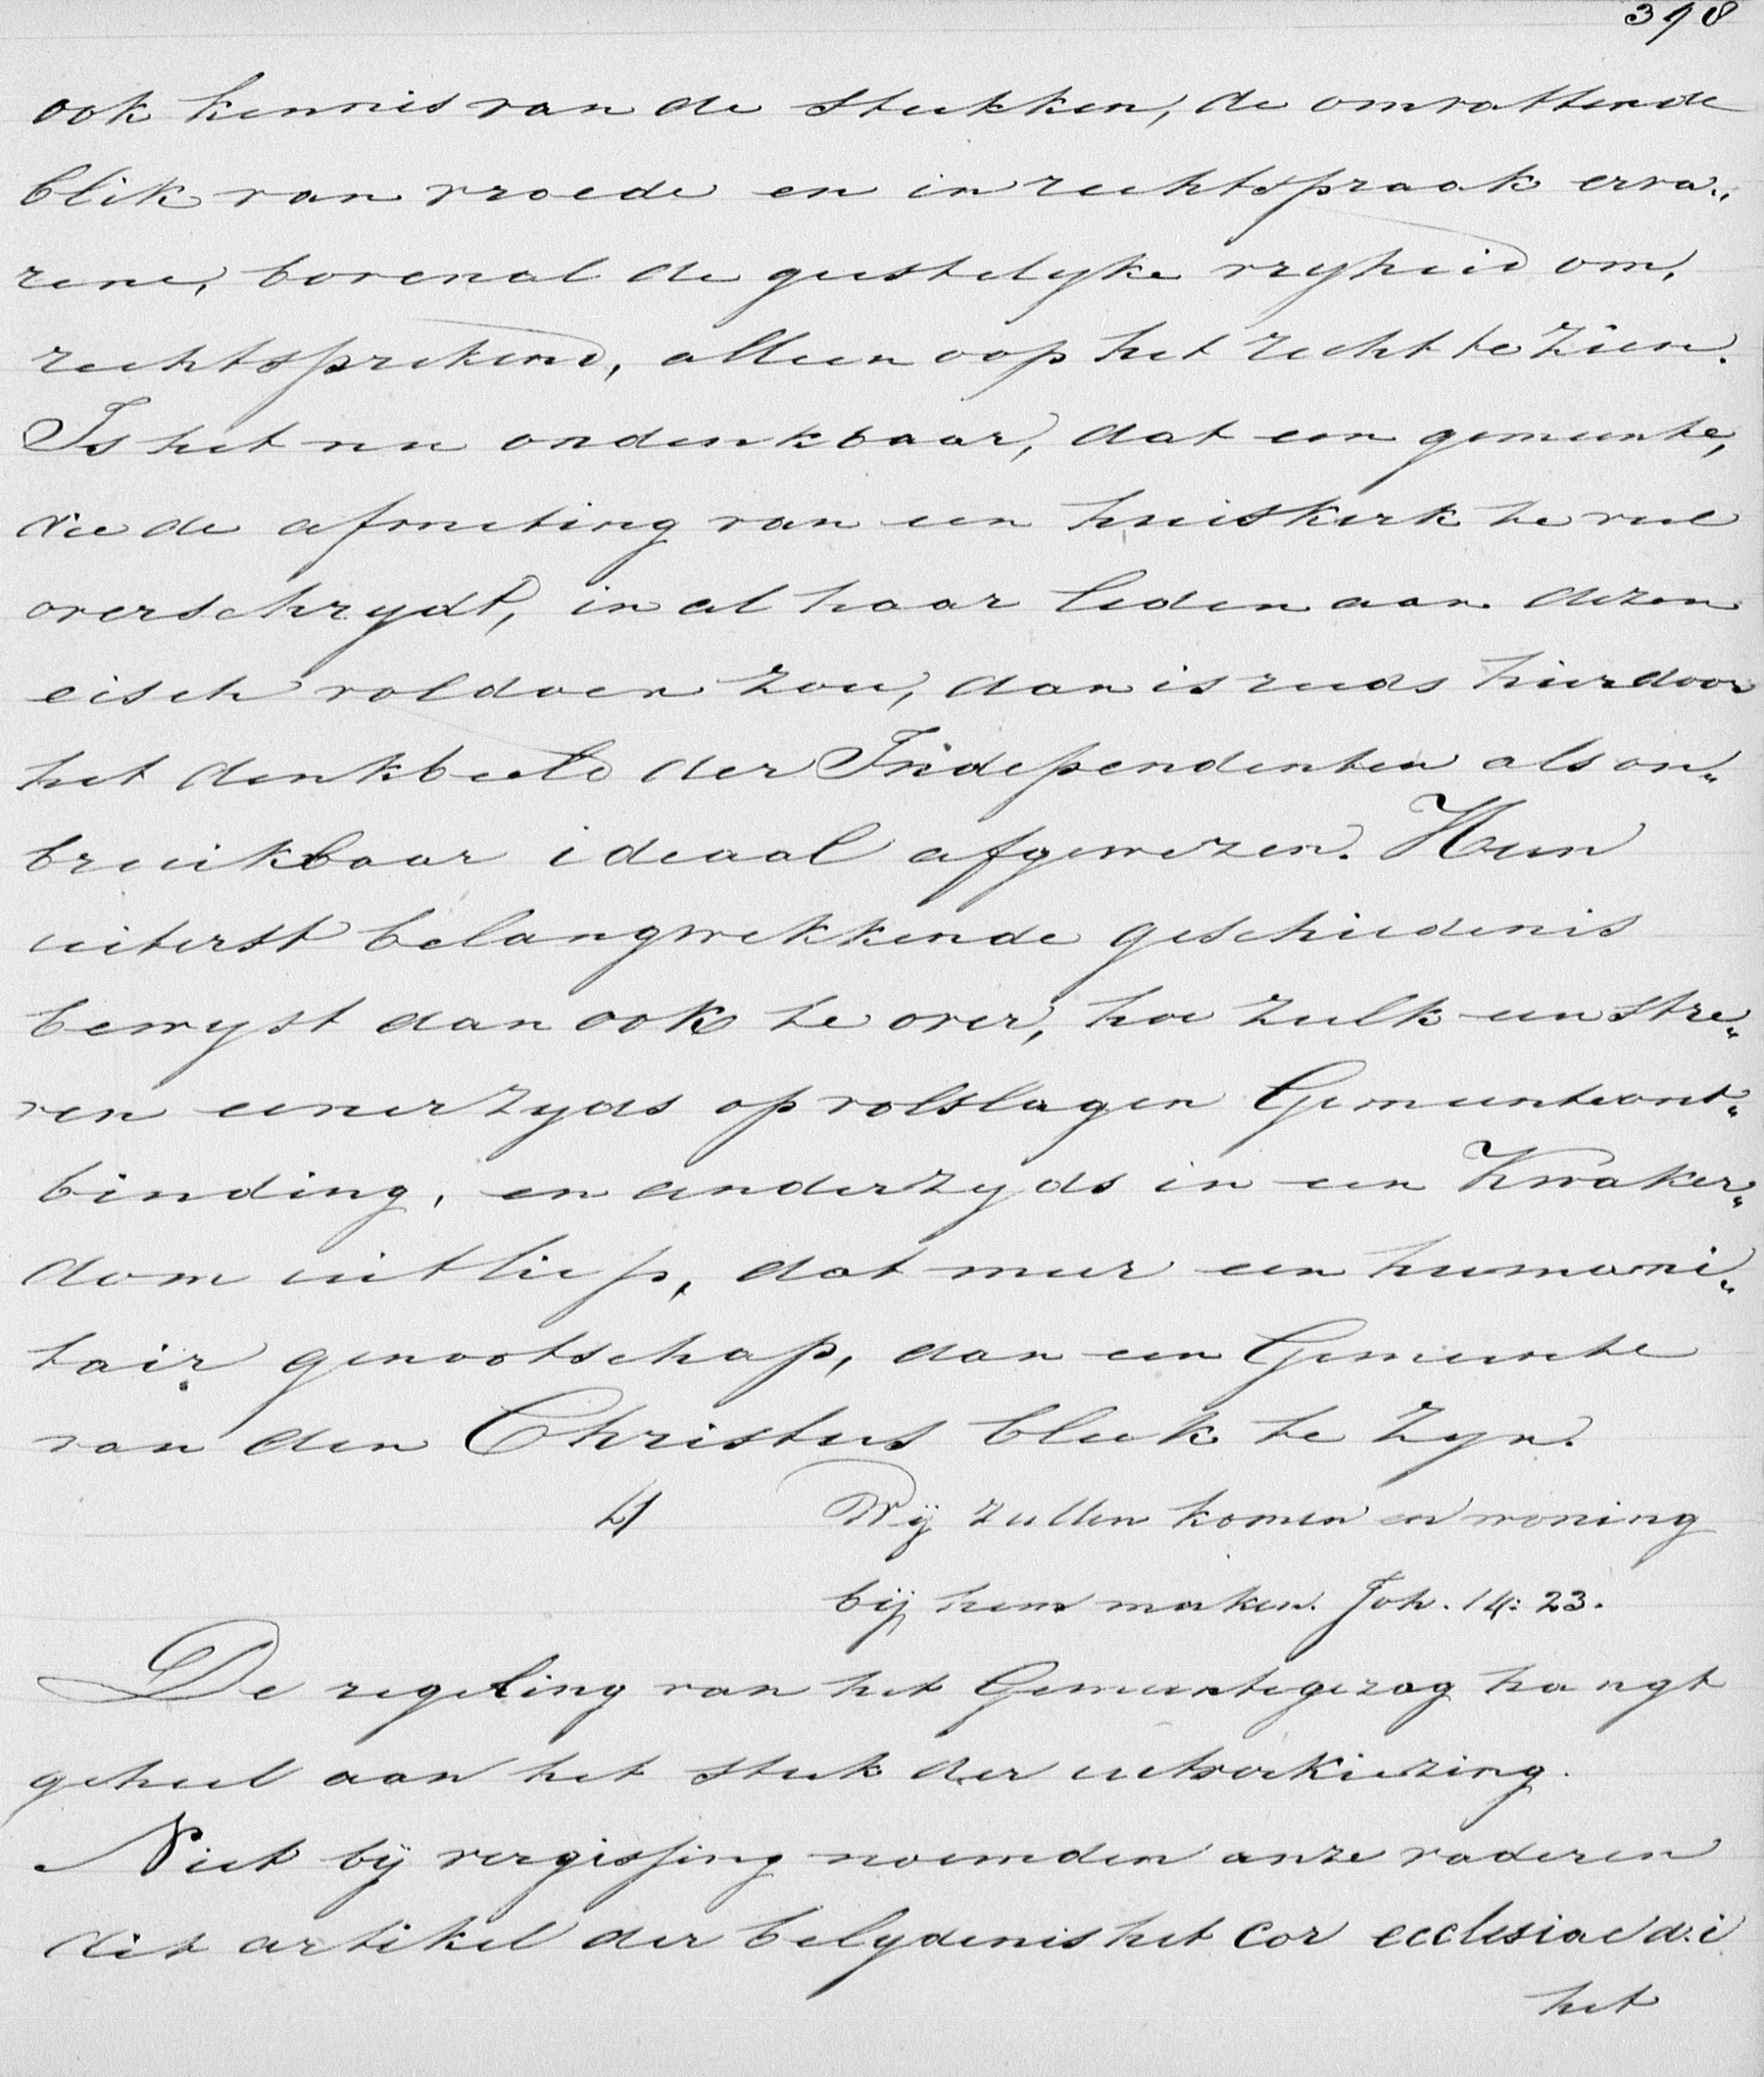 398
ook kennis van de stukken, de omvattende
blik van vroede en in rechtspraak erva„
rene, bovenal de geestelyke vryheid om,
rechtsprekend, alleen oop het recht te zien.
Is het nu ondenkbaar, dat een gemeente,
die de afmeting van een huiskerk te veel
overschrydt, in al haar leden aan dezen
eisch voldoen zou, dan is reeds hierdoor
het denkbeeld der Independenten als on„
bruikbaar ideaal afgewezen. Hun
uiterst belangwekkende geschiedenis
bewyst dan ook te over, hoe zulk een stre„
ven eenerzyds op volslagen Gemeenteont„
binding, en anderzyds in een Kwaker„
dom uitliep, dat meer een humani„
tair genootschap, dan een Gemeente
van den Christus bleek te zyn.
4 Wij zullen komen en woning
bij hem maken. Joh. 14: 23.
De regeling van het Gemeentegezag hangt
geheel aan het stuk der uitverkiezing.
Niet bij vergissing noemden onze vaderen
dit artikel der belydenis het cor ecclesiae d.i
het